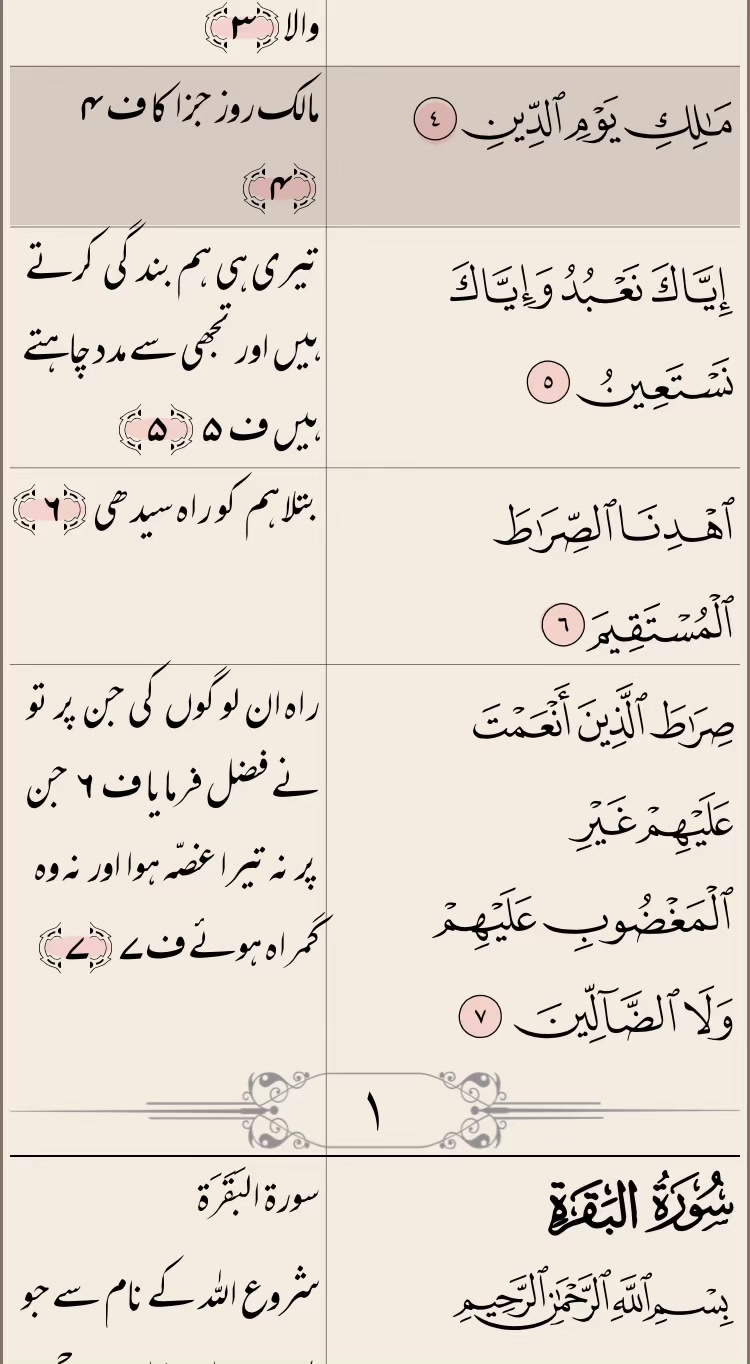 والا ﴿۳﴾
مَـٰلِكِ يَوْمِ ٱلدِّينِ ٤
مالک روز جزا کا ف ۴
﴿۴﴾
إِيَّاكَ نَعْبُدُ وَإِيَّاكَ
نَسْتَعِينُ ٥
تیری ہی ہم بندگی کرتے
ہیں اور تجھی سے مدد چاہتے
ہیں ف ۵ ﴿۵﴾
ٱهْدِنَا ٱلصِّرَٰطَ
ٱلْمُسْتَقِيمَ ٦
بتلا ہم کو راہ سیدھی ﴿۶﴾
صِرَٰطَ ٱلَّذِينَ أَنْعَمْتَ
عَلَيْهِمْ غَيْرِ
ٱلْمَغْضُوبِ عَلَيْهِمْ
وَلَا ٱلضَّآلِّينَ ٧
راہ ان لوگوں کی جن پر تو
نے فضل فرمایا ف ۶ جن
پر نہ تیرا غصّہ ہوا اور نہ وہ
گمراہ ہوئے ف ۷ ﴿۷﴾
١
سُورَةُ البَقَرَةِ
بِسْمِ ٱللَّهِ ٱلرَّحْمَٰنِ ٱلرَّحِيمِ
سورة البَقَرَة
شروع اللہ کے نام سے جو